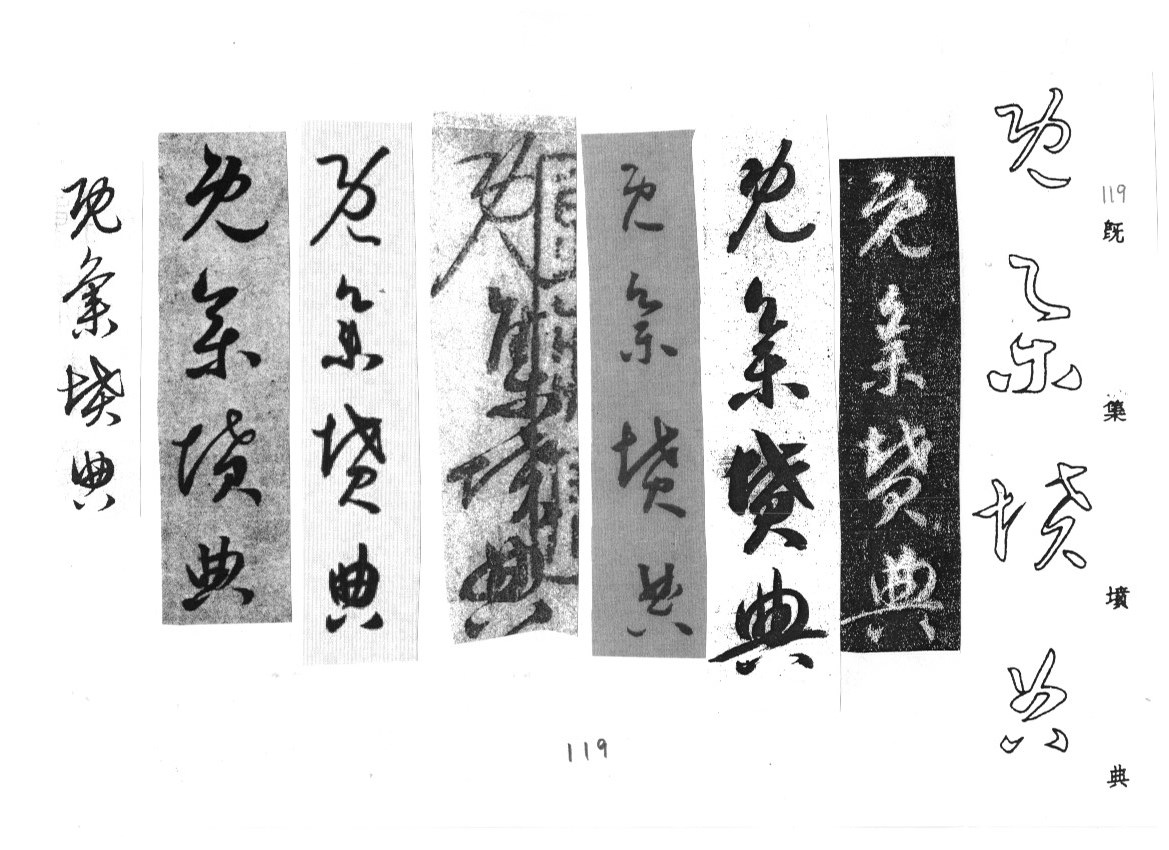 119
既集墳典
既集墳典
既集墳典
既集墳典
既集墳典
既集墳典
既集墳典
既集墳典
既集墳典
119